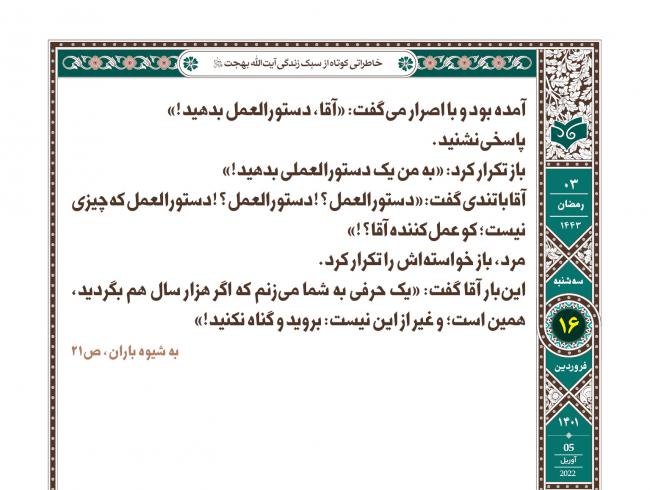 خاطراتی کوتاه از سبک زندگی آیت‌الله بهجت
آمده بود و با اصرار می‌گفت: «آقا، دستورالعمل بدهید!»
پاسخی نشنید.
باز تکرار کرد: «به من یک دستورالعملی بدهید!»
آقا با تندی گفت: «دستورالعمل؟! دستورالعمل؟! دستورالعمل که چیزی
نیست؛ کو عمل‌کننده آقا؟!»
مرد، باز خواسته‌اش را تکرار کرد.
این‌بار آقا گفت: «یک حرفی به شما می‌زنم که اگر هزار سال هم بگردید،
همین است؛ و غیر از این نیست: بروید و گناه نکنید!»
به شیوه باران، ص۲۱
۰۳
رمضان
۱۴۴۳
سه‌شنبه
۱۶
فروردین
۱۴۰۱
05
آوریل
2022